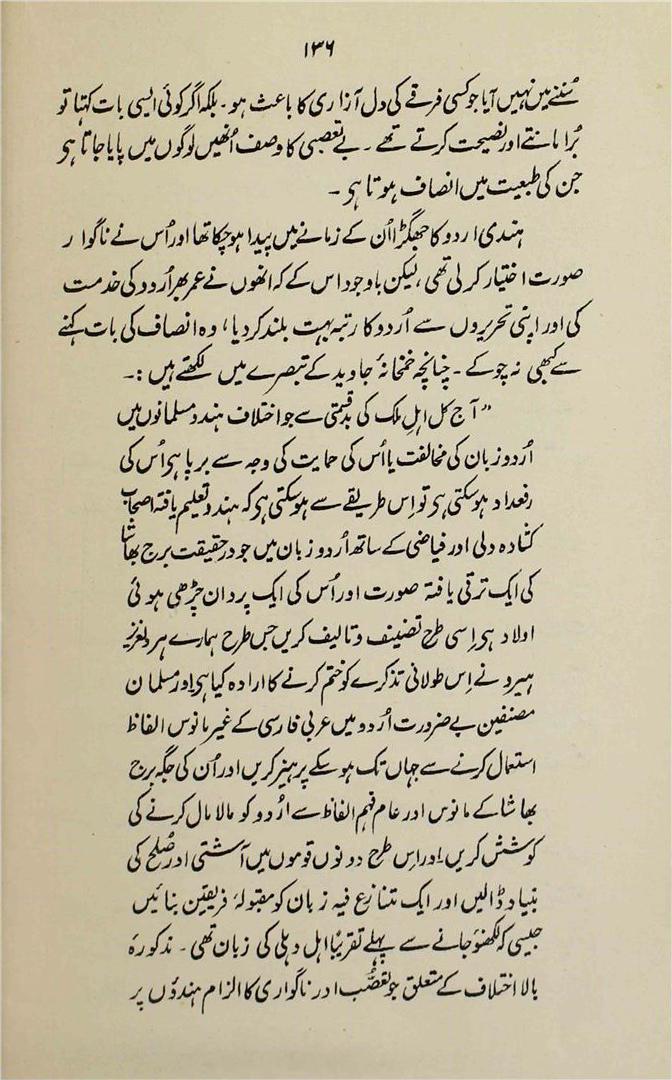 ۱۳۶
سُننے میں نہیں آیا جو کسی فرقے کی دل آزاری کا باعث ہو۔ بلکہ اگر کوئی ایسی بات کہتا تو
بُرا مانتے اور نصیحت کرتے تھے۔ بے تعصبی کا وصف اُنھیں لوگوں میں پایا جاتا ہی
جن کی طبیعت میں انصاف ہوتا ہی۔
ہندی اردو کا جھگڑا اُن کے زمانے میں پیدا ہو چکا تھا اور اُس نے ناگوار
صورت اختیار کر لی تھی، لیکن باوجود اس کے کہ انھوں نے عمر بھر اُردو کی خدمت
کی اور اپنی تحریروں سے اُردو کا رتبہ بہت بلند کر دیا، وہ انصاف کی بات کہنے
سے کبھی نہ چوکے۔ چنانچہ خمخانۂ جاوید کے تبصرے میں لکھتے ہیں:۔
"آج کل اہلِ ملک کی بدقسمتی سے جو اختلاف ہندو مسلمانوں میں
اُردو زبان کی مخالفت یا اُس کی حمایت کی وجہ سے برپا ہی اُس کی
رفعداد ہو سکتی ہی تو اِس طریقے سے ہو سکتی ہی کہ ہندو تعلیم یافتہ اصحاب
کشادہ دلی اور فیاضی کے ساتھ اُردو زبان میں جو درحقیقت برج بھاشا
کی ایک ترقی یافتہ صورت اور اُس کی ایک پروان چڑھی ہوئی
اولاد ہی اِسی طرح تصنیف و تالیف کریں جس طرح ہمارے ہر دلعزیز
ہیرو نے اِس طولانی تذکرے کو ختم کرنے کا ارادہ کیا ہی اور مسلمان
مصنفین بے ضرورت اُردو میں عربی فارسی کے غیر مانوس الفاظ
استعمال کرنے سے جہاں تک ہو سکے پرہیز کریں اور اُن کی جگہ برج
بھاشا کے مانوس اور عام فہم الفاظ سے اُردو کو مالا مال کرنے کی
کوشش کریں اور اِس طرح دونوں قوموں میں آشتی اور صُلح کی
بنیاد ڈالیں اور ایک متنازع فیہ زبان کو مقبولۂ فریقین بنائیں
جیسی کہ لکھنؤ جانے سے پہلے تقریبًا اہل دہلی کی زبان تھی۔ مذکورہ
بالا اختلاف کے متعلق جو تعصّب اور ناگواری کا الزام ہندوؤں پر